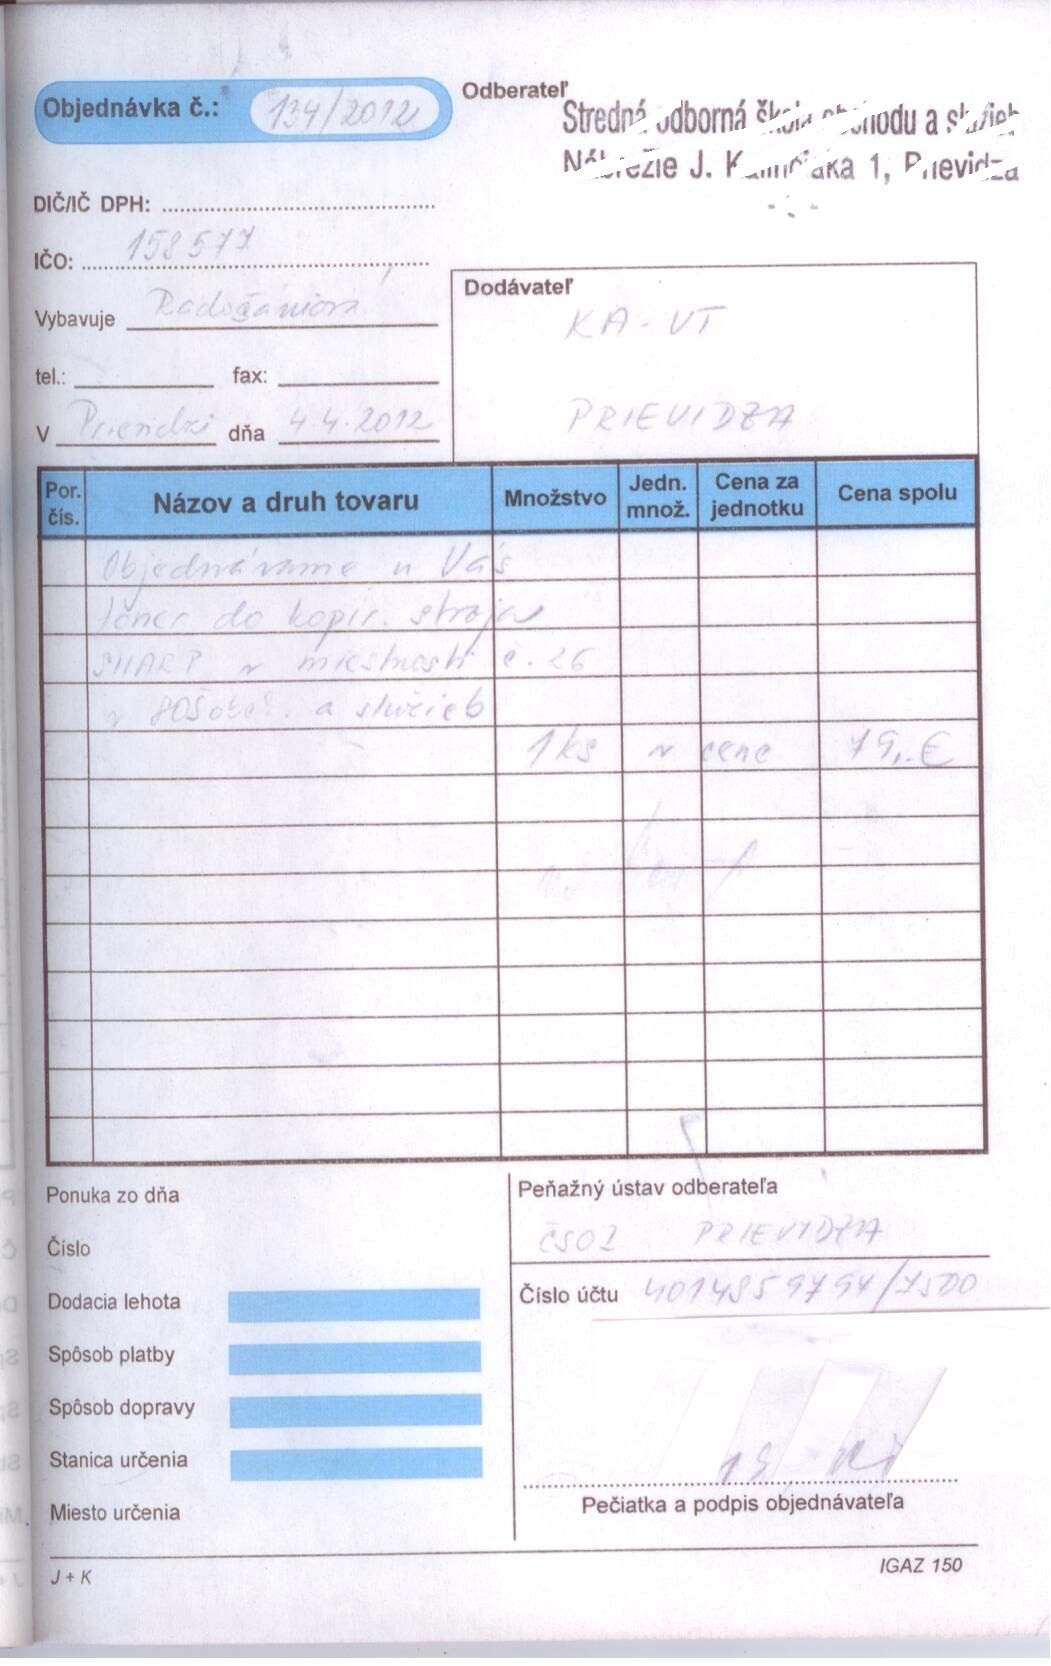 Objednávka č.: 134/2012
Odberateľ
Stredná odborná škola obchodu a služieb
Nábrežie J. Kalinčiaka 1, Prievidza
DIČ/IČ DPH:
IČO: 158577
Vybavuje
tel.: fax:
V Prievidzi dňa 4.4.2012
Dodávateľ
KA-VT
PRIEVIDZA
Por. čís. Názov a druh tovaru Množstvo Jedn. množ. Cena za jednotku Cena spolu
Objednávame u Vás
toner do kopír. stroja
SHARP v miestnosti č. 26
v a služieb
1 ks v cene 79,-€
Ponuka zo dňa
Číslo
Dodacia lehota
Spôsob platby
Spôsob dopravy
Stanica určenia
Miesto určenia
Peňažný ústav odberateľa
PRIEVIDZA
Číslo účtu 4014859794/7500
Pečiatka a podpis objednávateľa
J + K
IGAZ 150